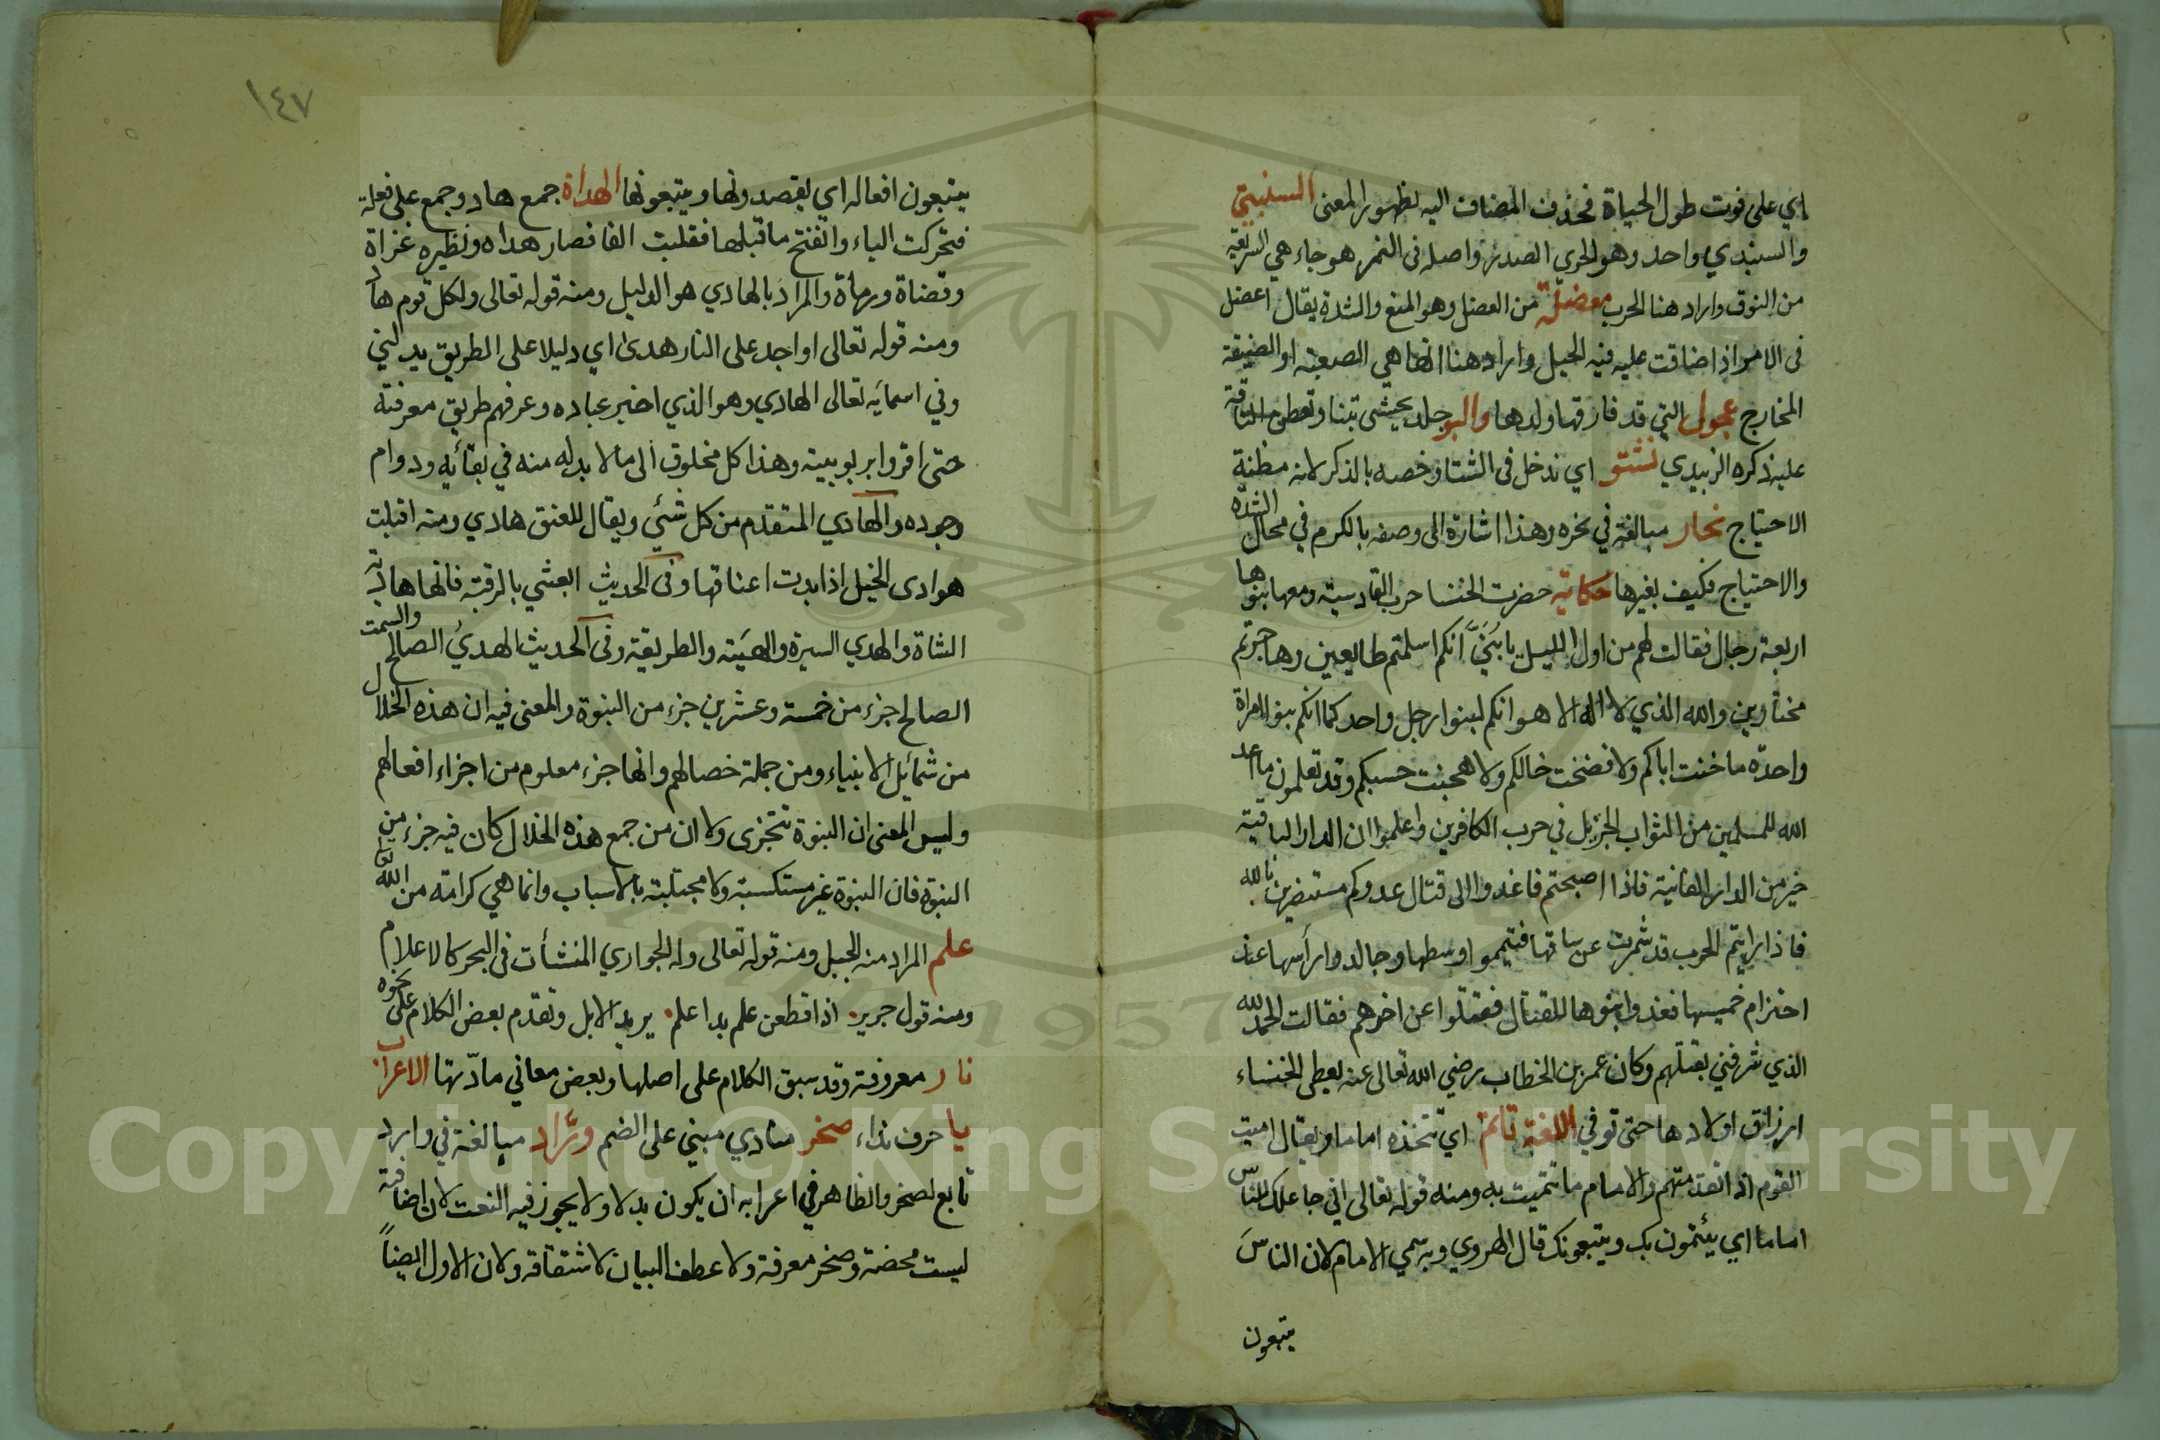 اي على فوت طول الحياة فحذف المضاف اليه لظهور المعنى السنبتي
والسبندي واحد وهو الجري الصدر واصله في النمر هوجاء هي السريعة
من النوق واراد هنا الحرب معضلة من العضل وهو المنع والشدة يقال اعضل
في الامر اذا ضاقت عليه فيه الحيل واراد هنا انها هي الصعبة او الضيقة
المخارج عجول التي قد فارقها ولدها والبو جلد يحشى تبنا وتعطى الناقة
عليه ذكره الزبيدي نشتو اي ندخل في الشتا وخصه بالذكر لانه مظنة
الاحتياج نحار مبالغة في نحره وهذا اشارة الى وصفه بالكرم في محال الشدة
والاحتياج فكيف بغيرها حكاية حضرت الخنسا حرب القادسية ومعها بنوها
اربعة رجال فقالت لهم من اول الليل يا بني انكم اسلمتم طايعين وهاجرتم
مختارين والله الذي لا اله الا هو انكم لبنوا رجل واحد كما انكم بنو امراة
واحدة ما خنت اباكم ولا فضحت خالكم ولا هجنت حسبكم وقد تعلمون ما اعد
الله للمسلمين من الثواب الجزيل في حرب الكافرين واعلموا ان الدار الباقية
خير من الدار الفانية فاذا اصبحتم فاغدوا الى قتال عدوكم مستنصرين بالله
فاذا رايتم الحرب قد شمرت عن ساقها فتيمموا وسطها وجالدوا رأسها عند
احتزام خميسها فغدوا بنوها للقتال فقتلوا عن اخرهم فقالت الحمد لله
الذي شرفني بقتلهم وكان عمر بن الخطاب رضي الله تعالى عنه يعطى للخنساء
ارزاق اولادها حتى توفي اللغة تاتم اي تتخذه اماما ويقال اميت
القوم اذا تقدمتهم والامام ما تتميت به ومنه قوله تعالى اني جاعلك للناس
اماما اي يئتمون بك ويتبعونك قال الهروي وبه سمي الامام لان الناس
يتبعون
١٤٧
يتبعون افعاله اي يقصدونها ويتبعونها الهداة جمع هاد وجمع على فعلة
فتحركت الياء وانفتح ما قبلها فقلبت الفا فصار هداه ونظيره غزاة
وقضاة ورماة والمراد بالهادي هو الدليل ومنه قوله تعالى ولكل قوم هاد
ومنه قوله تعالى او اجد على النار هدى اي دليلا على الطريق يدلني
وفي اسمائه تعالى الهادي وهو الذي اخبر عباده وعرفهم طريق معرفته
حتى اقروا بربوبيته وهذا كل مخلوق الى ما لا بد له منه في بقائه ودوام
وجوده والهادي المتقدم من كل شئي ويقال للعنق هادي ومنه اقبلت
هوادى الخيل اذا بدت اعناقها وفي الحديث ابعثي بالرقبة فانها هادية
الشاة والهدي السيرة والهيئة والطريقة وفي الحديث الهدي الصالح والسمت
الصالح جزء من خمسة وعشرين جزء من النبوة والمعنى فيه ان هذه الخلال
من شمائل الانبياء ومن جملة خصالهم وانها جزء معلوم من اجزاء افعالهم
وليس المعنى ان النبوة تتجزى ولا ان من جمع هذه الخلال كان فيه جزء من
النبوة فان النبوة غير مستكسبة ولا مجتلبة بالاسباب وانما هي كرامة من الله
علم المراد منه الجبل ومنه قوله تعالى وله الجواري المنشأت في البحر كالاعلام
ومنه قول جرير اذا قطعن علم بدا علم يريد الابل وتقدم بعض الكلام على نحوه
نار معروفة وقد سبق الكلام على اصلها وبعض معاني مادتها الاعراب
يا حرف نداء صخر منادي مبني على الضم وراد مبالغة في وارد
تابع لصخر والظاهر في اعرابه ان يكون بدلا ولا يجوز فيه النعت لان اضافته
ليست محضة وصخر معرفة ولا عطف البيان لاشتقاقه ولان الاول ايضاً
Copyright © King Saud University
1957